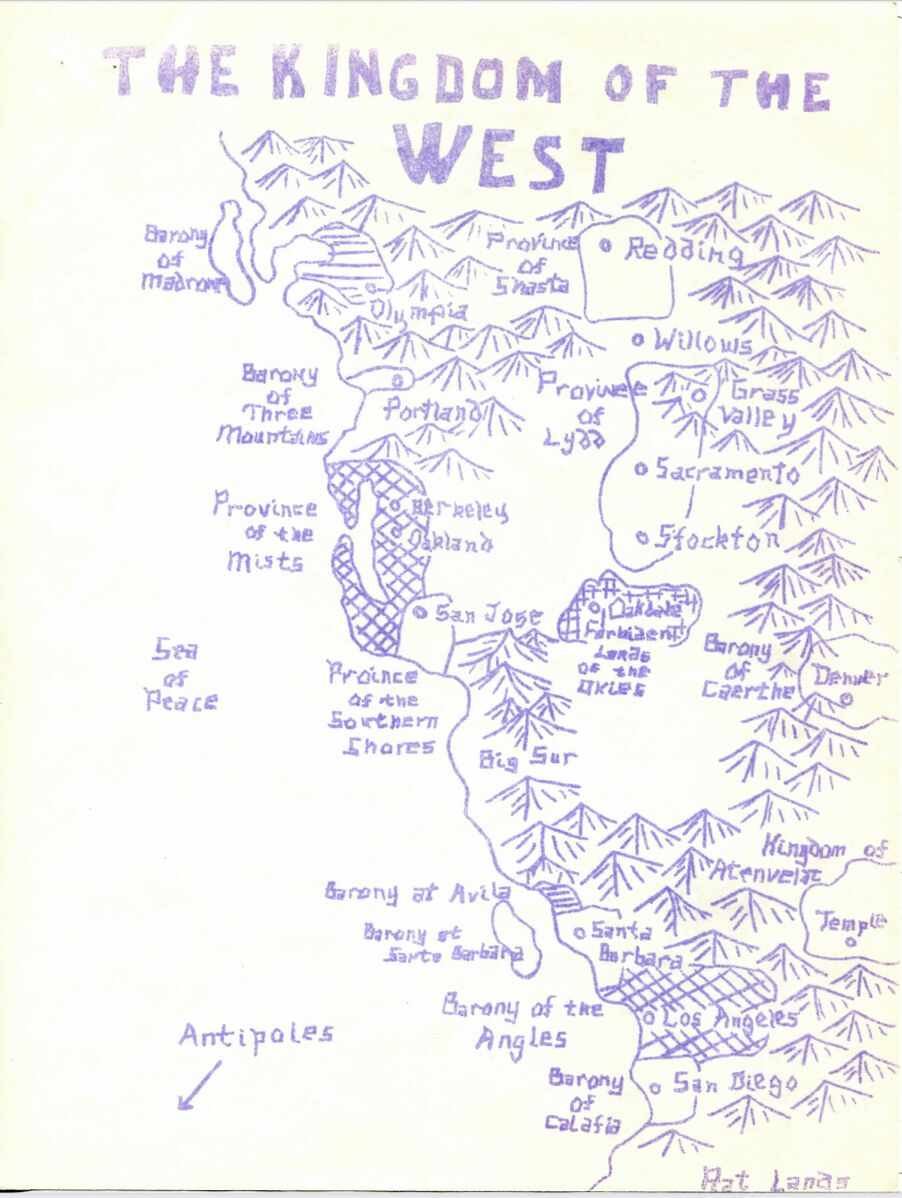 THE KINGDOM OF THE
WEST
Barony
of
Madrone
Province
of
Shasta
Redding
Olympia
Willows
Barony
of
Three
Mountains
Portland
Province
of
Lydd
Grass
Valley
Sacramento
Stockton
Province
of the
Mists
Berkeley
Oakland
San Jose
Oakdale
Forbident
Lands
of the
Okies
Barony
of
Caerthe
Denver
Sea
of
Peace
Proince
of the
Southern
Shores
Big Sur
Kingdom of
Atenvelat
Temple
Barony at Avila
Barony at
Santa Barbara
Santa
Barbara
Barony of the
Angles
Los Angeles
Antipoles
Barony
of
Calafia
San Diego
Rat Lands